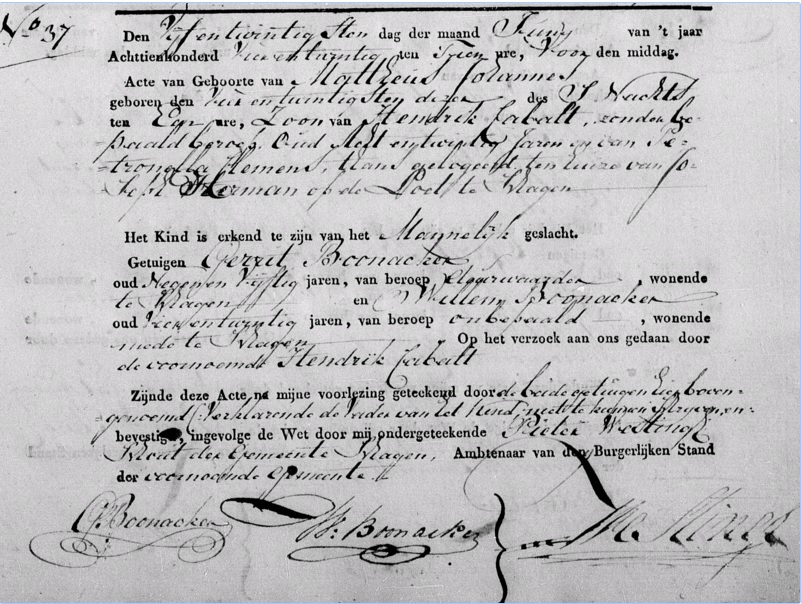 No 37
Den Vijf entwintig Sten dag der maand Juny van 't jaar
Achttienhonderd Vier entwintig ten Tien ure, Voor den middag.
Acte van Geboorte van Mattheus Johannes
geboren den Vier entwintig Sten dezer des S Nachts
ten Een ure, Zoon van Hendrik Cabalt, zonder be-
paald beroep, Oud Acht entwintig Jaren en van Pe-
tronella Clemens, thans gelogeerd, ten huize van Jo-
seph Herman op de Loet te Kragen
Het Kind is erkend te zijn van het Mannelijk geslacht.
Getuigen Gerrit Boonacker
oud Negen en Vijftig jaren, van beroep, wonende
te Kragen en Willem Boonacker
oud Vier entwintig jaren, van beroep onbepaald, wonende
mede te Kragen Op het verzoek aan ons gedaan door
de voornoemde Hendrik Cabalt
Zijnde deze Acte na mijne voorlezing geteekend door de beide getuigen hier boven-
genoemd, Verklarende de Vader van het Kind, niet te kunnen schrijven, en
bevestigd, ingevolge de Wet door mij ondergeteekende Pieter Westing
Schout der Gemeente Kragen, Ambtenaar van den Burgerlijken Stand
der voornoemde Gemeente
G: Boonacker W: Boonacker Westing